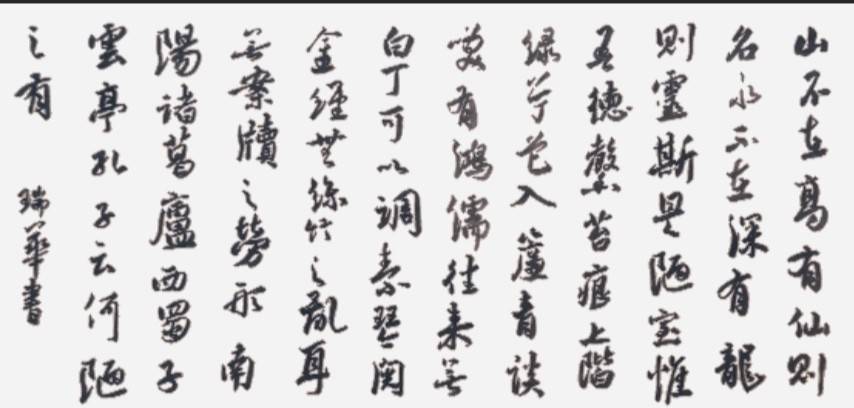 山不在高有仙则
名水不在深有龍
则靈斯是陋室惟
吾德馨苔痕上階
绿草色入簾青谈
笑有鴻儒往来無
白丁可以調素琴閱
金經無絲竹之亂耳
無案牘之勞形南
陽諸葛廬西蜀子
雲亭孔子云何陋
之有
瑞華書